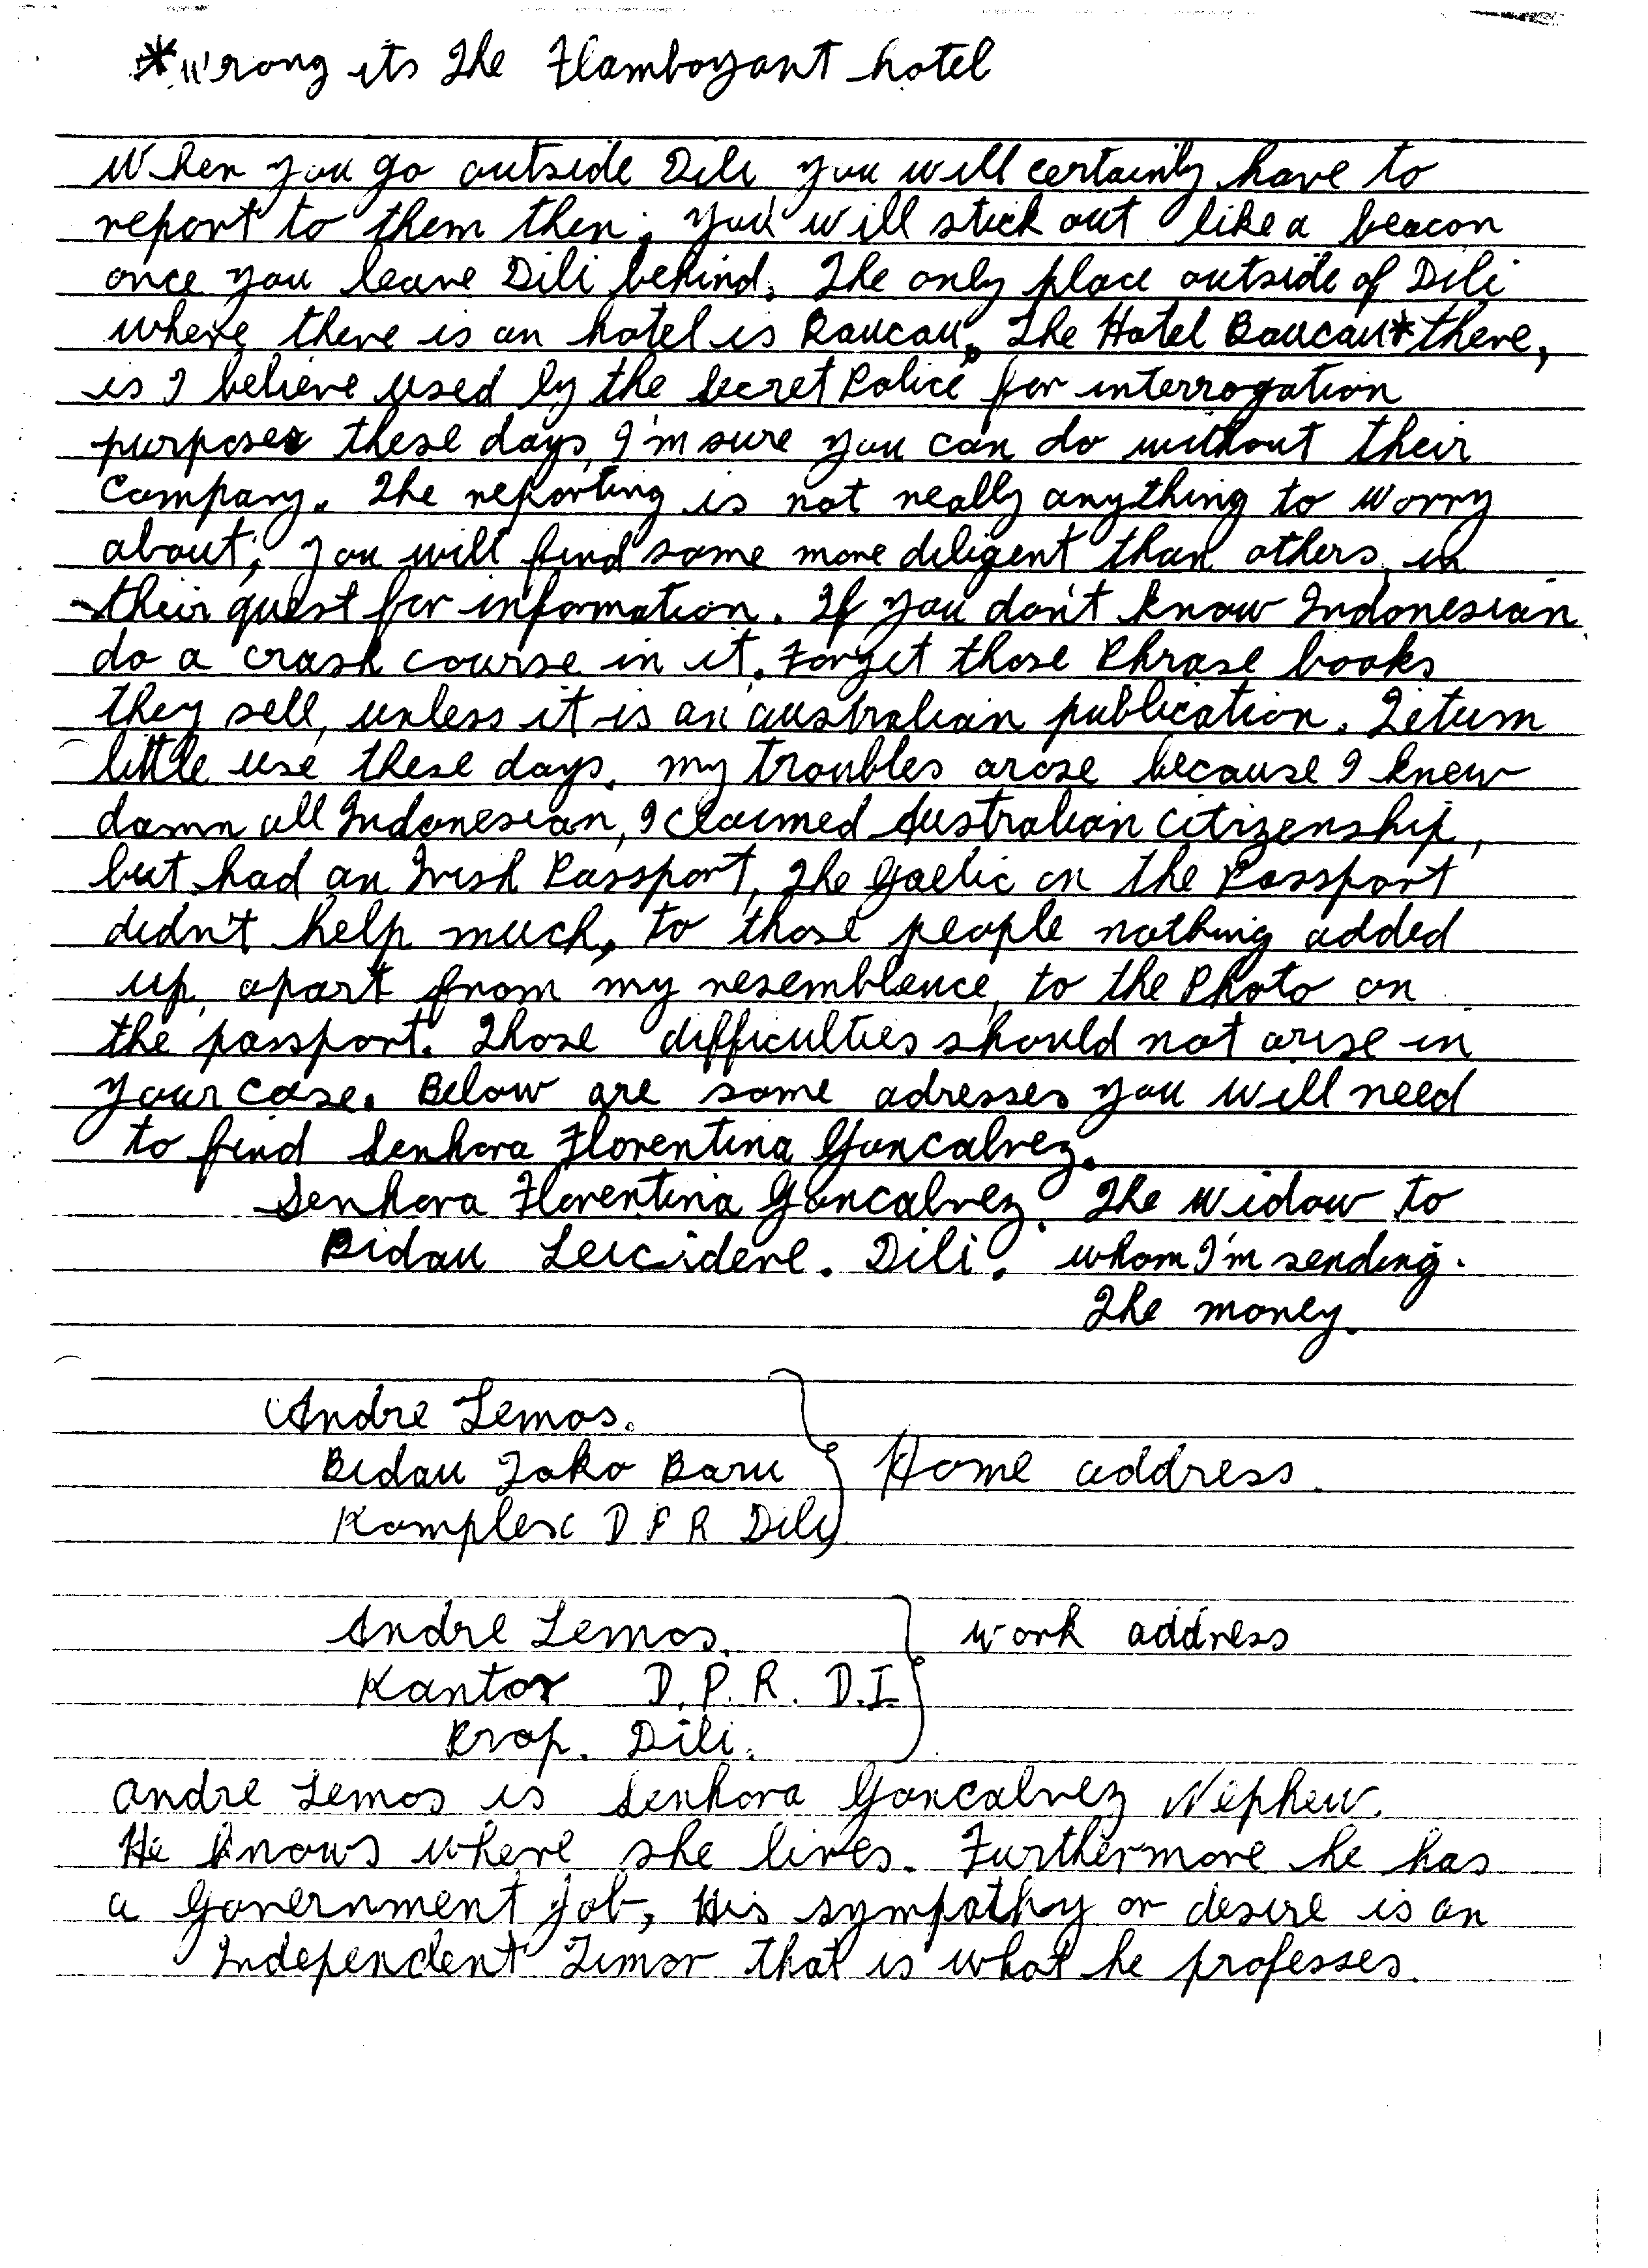 *wrong its The Flamboyant hotel
When you go outside Dili you will certainly have to
report to them then; you will stick out like a beacon
once you leave Dili behind. The only place outside of Dili
where there is an hotel is Baucau. The Hotel Baucau* there,
is I believe used by the Secret Police for interrogation
purposes these days, I'm sure you can do without their
Company. The reporting is not really anything to worry
about; you will find some more diligent than others, in
their quest for information. If you don't know Indonesian
do a crash course in it. Forget those Phrase books
they sell, unless it is an australian publication. Tetum
little use these days. my troubles arose because I knew
damn all Indonesian, I claimed Australian Citizenship,
but had an Irish Passport, The Gaelic on the Passport
didn't help much, to those people nothing added
up, apart from my resemblence, to the Photo on
the passport. Those difficulties should not arise in
your case. Below are some adresses you will need
to find Senhora Florentina Goncalvez.
Senhora Florentina Goncalvez. The widow to
Bidau Leicidere. Dili. whom I'm sending.
The money.
Andre Lemos.
Bidau Toko Baru } Home address.
Komplex D P R Dili
Andre Lemos. } work address
Kantor D.P.R. D.I.
Prop. Dili.
Andre Lemos is Senhora Goncalvez Nephew.
He knows where she lives. Furthermore he has
a Government job, His sympathy or desire is an
Independent Timor that is what he professes.